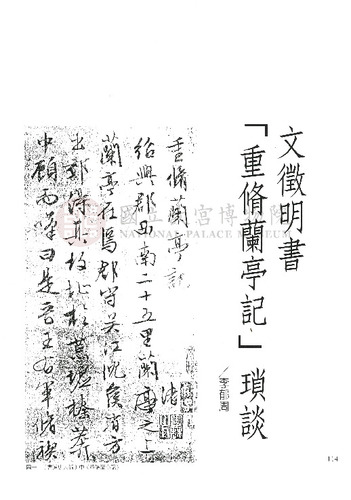 文徵明書
「重脩蘭亭記」瑣談
／李郁周
重脩蘭亭記
紹興郡西南二十五里蘭渚之上
蘭亭在焉郡守吳江沈侯省方
出郊得其故址於荒墟榛莽
中顧而嘆曰是晉王右軍脩禊
國立故宮博物院
NATIONAL PALACE MUSEUM
114